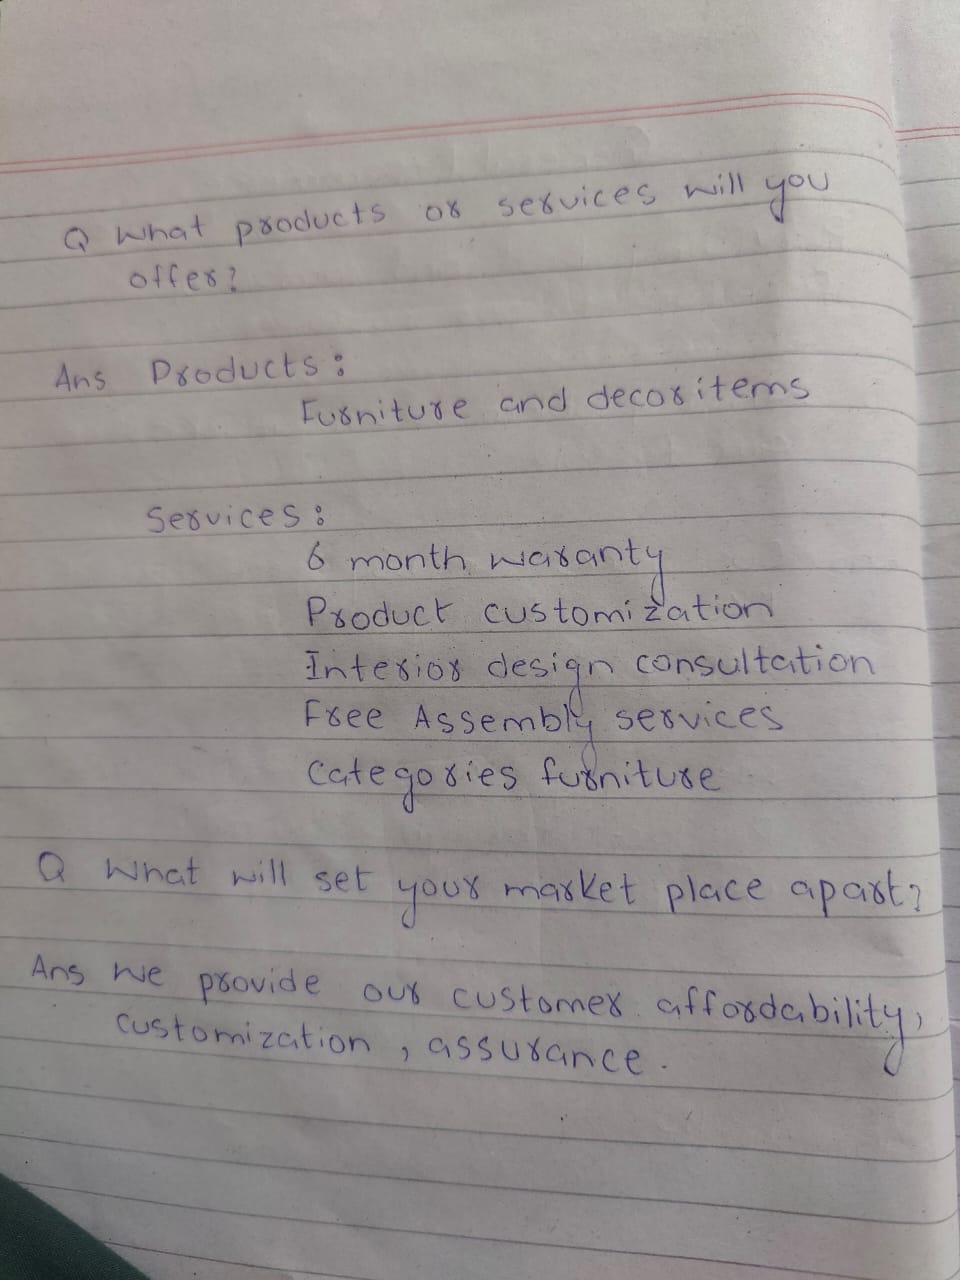 Q What products or services will you
offer?
Ans Products:
Furniture and decor items
Services:
6 month waranty
Product customization
Interior design consultation
Free Assembly services
Categories furniture
Q What will set your market place apart?
Ans We provide our customer affordability,
customization, assurance.